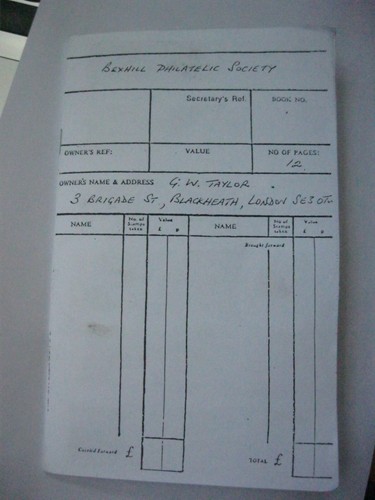 BEXHILL PHILATELIC SOCIETY
Secretary's Ref. BOOK NO.
OWNER'S REF: VALUE NO OF PAGES:
12
OWNER'S NAME & ADDRESS G. W. TAYLOR
3 BRIGADE ST, BLACKHEATH, LONDON SE3 0T
NAME No. of Stamps taken Value £ p NAME No. of Stamps taken Value £ p
Brought forward
Carried forward £ TOTAL £